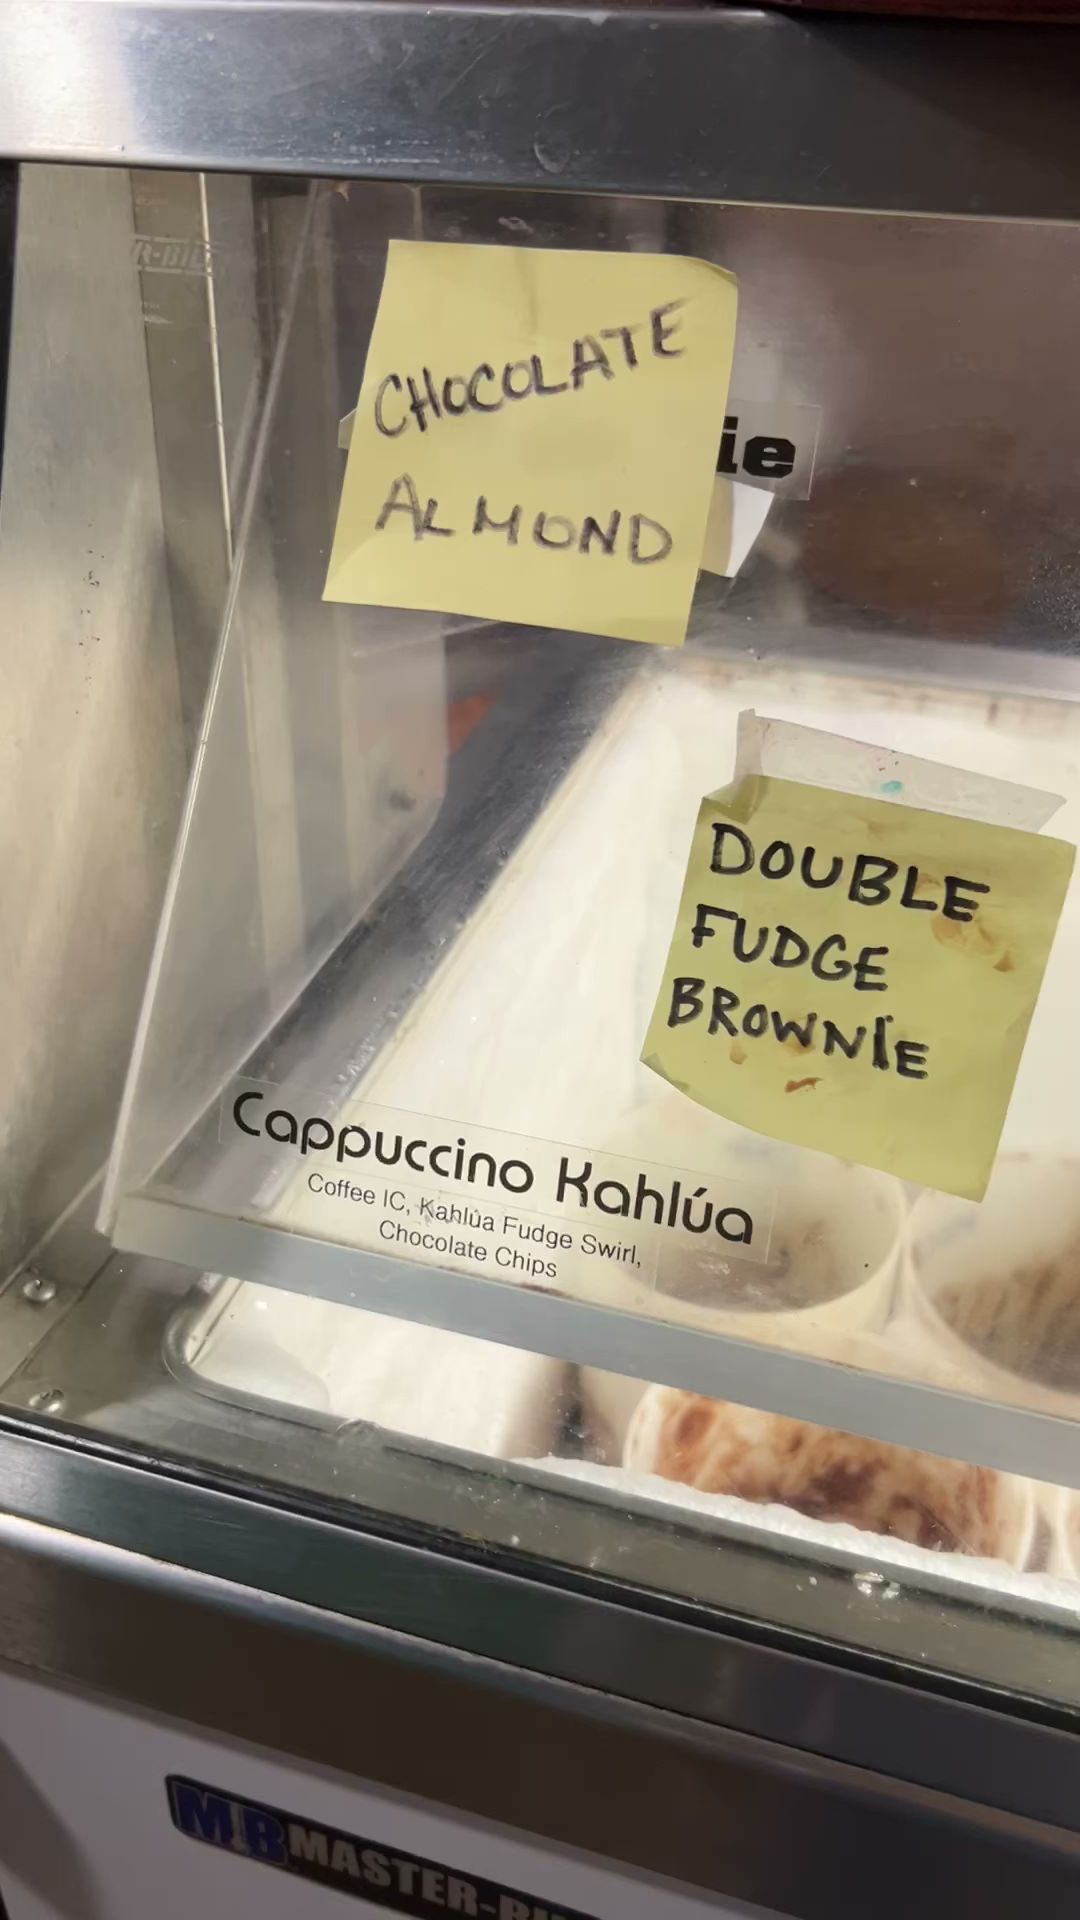 CHOCOLATE
ALMOND
ie
DOUBLE
FUDGE
BROWNIE
Cappuccino Kahlúa
Coffee IC, Kahlúa Fudge Swirl,
Chocolate Chips
MB MASTER-